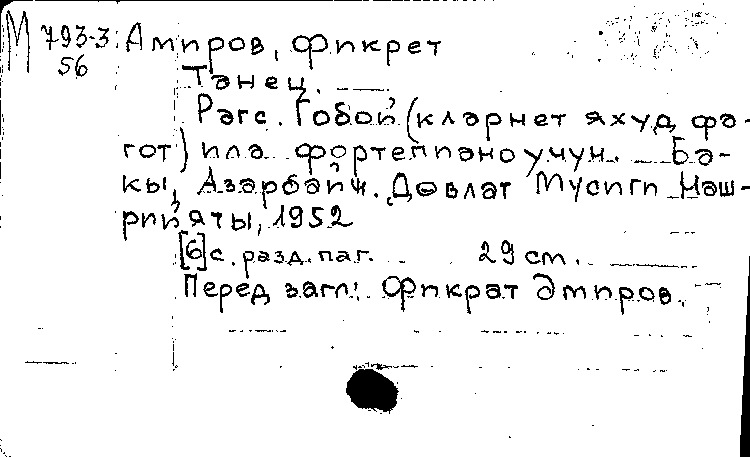 М 793-3 Амиров, Фикрет
56
Танец.
Рәгс. Гобой (кларнет яхуд фа-
гот) илә фортепиано учун. Ба-
кы, Азәрбайҹ. Дөвләт Мусиги Нәш-
риййаты, 1952
[6] с. разд. паг. 29 см.
Перед загл.: Фикрәт Әмиров.